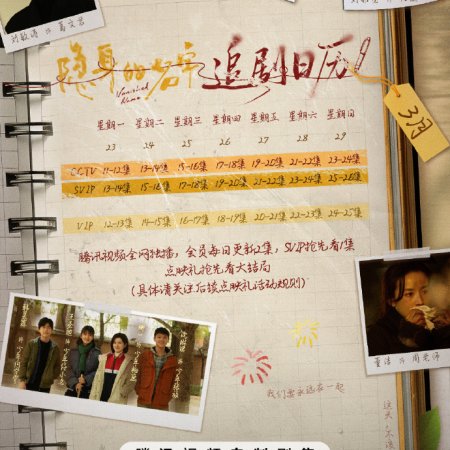 隐身的名字 追剧日历!
Vanished
Name
3月
星期一 星期二 星期三 星期四 星期五 星期六 星期日
23 24 25 26 27 28 29
CCTV 11-12集 13-14集 15-16集 17-18集 19-20集 21-22集 23-24集
SVIP 13-14集 15-16集 17-18集 19-20集 21-22集 23-24集 25-26集
VIP 12-13集 14-15集 16-17集 18-19集 20-21集 22-23集 24-25集
腾讯视频全网独播，会员每日更新2集，SVIP抢先看1集
点映礼抢先看大结局
(具体请关注后续点映礼活动规则)
董洁 饰 周老师
我们要永远在一起
腾讯视频自制剧集